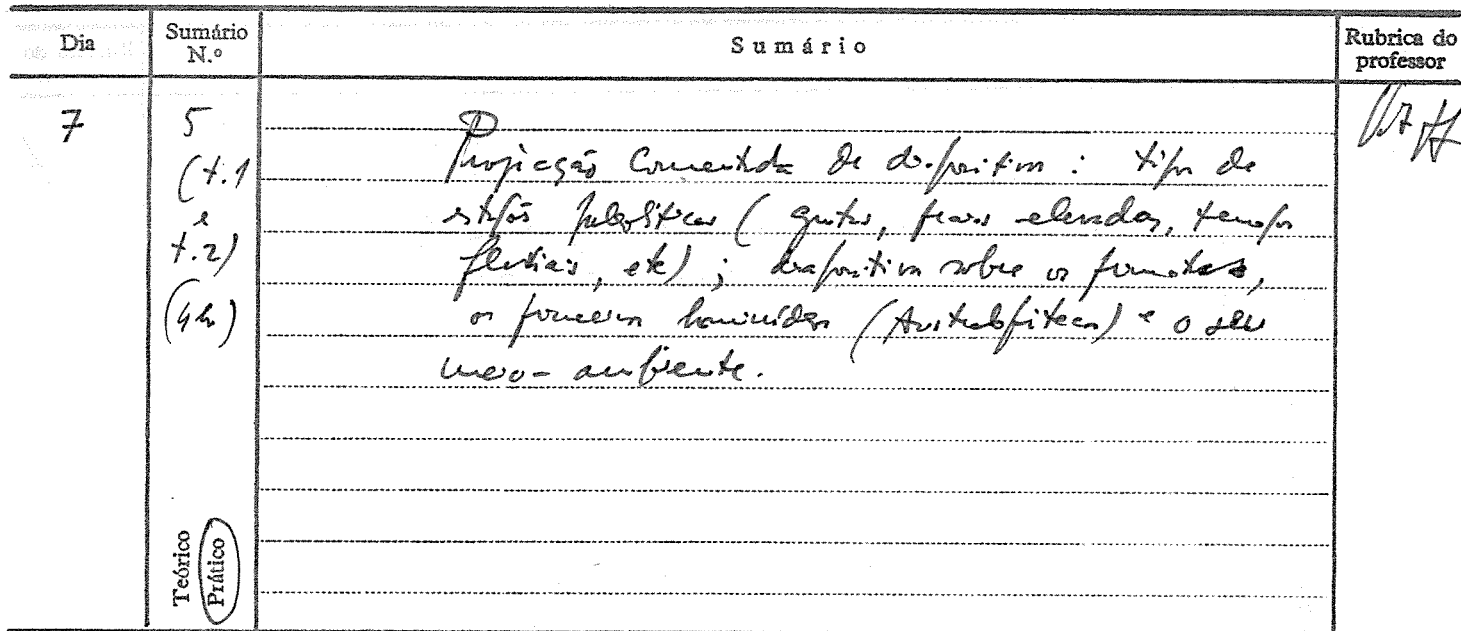 Dia
Sumário N.º
Sumário
Rubrica do professor
7
5
(t.1
e
t.2)
(4h)
Projecção comentada de diapositivos: tipos de
estações paleolíticas (grutas, praias elevadas, terraços
fluviais, etc); diapositivos sobre os primatas,
os primeiros hominídeos (Australopitecos) e o seu
meio-ambiente.
Teórico
Prático